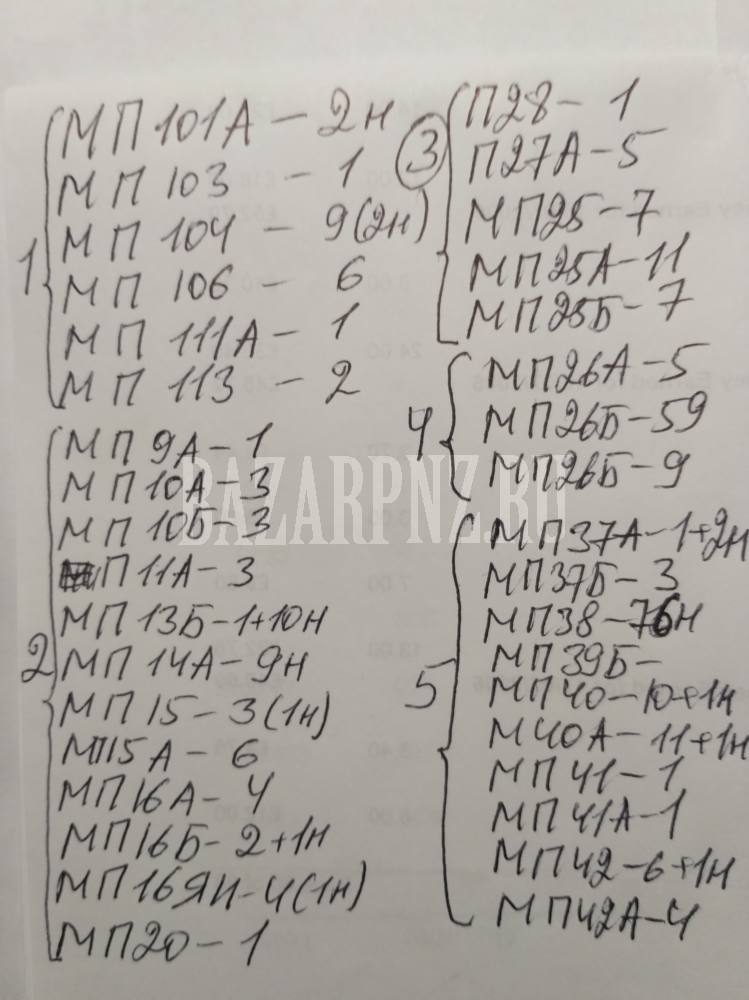 1
МП101А - 2н
МП 103 - 1
МП 104 - 9(2н)
МП 106 - 6
МП 111А - 1
МП 113 - 2
2
МП 9А - 1
МП 10А - 3
МП 10Б - 3
П 11А - 3
МП 13Б - 1+10н
МП 14А - 9н
МП 15 - 3(1н)
МП15А - 6
МП16А - 4
МП16Б - 2+1н
МП16ЯII - 4(1н)
МП20 - 1
3
П28 - 1
П27А - 5
МП25 - 7
МП25А - 11
МП25Б - 7
4
МП26А - 5
МП26Б - 59
МП26Б - 9
5
МП37А - 1+2н
МП37Б - 3
МП38 - 76н
МП39Б -
МП40 - 10+1н
М40А - 11+1н
МП41 - 1
МП41А - 1
МП42 - 6+1н
МП42А - 4
BAZARPNZ.RU